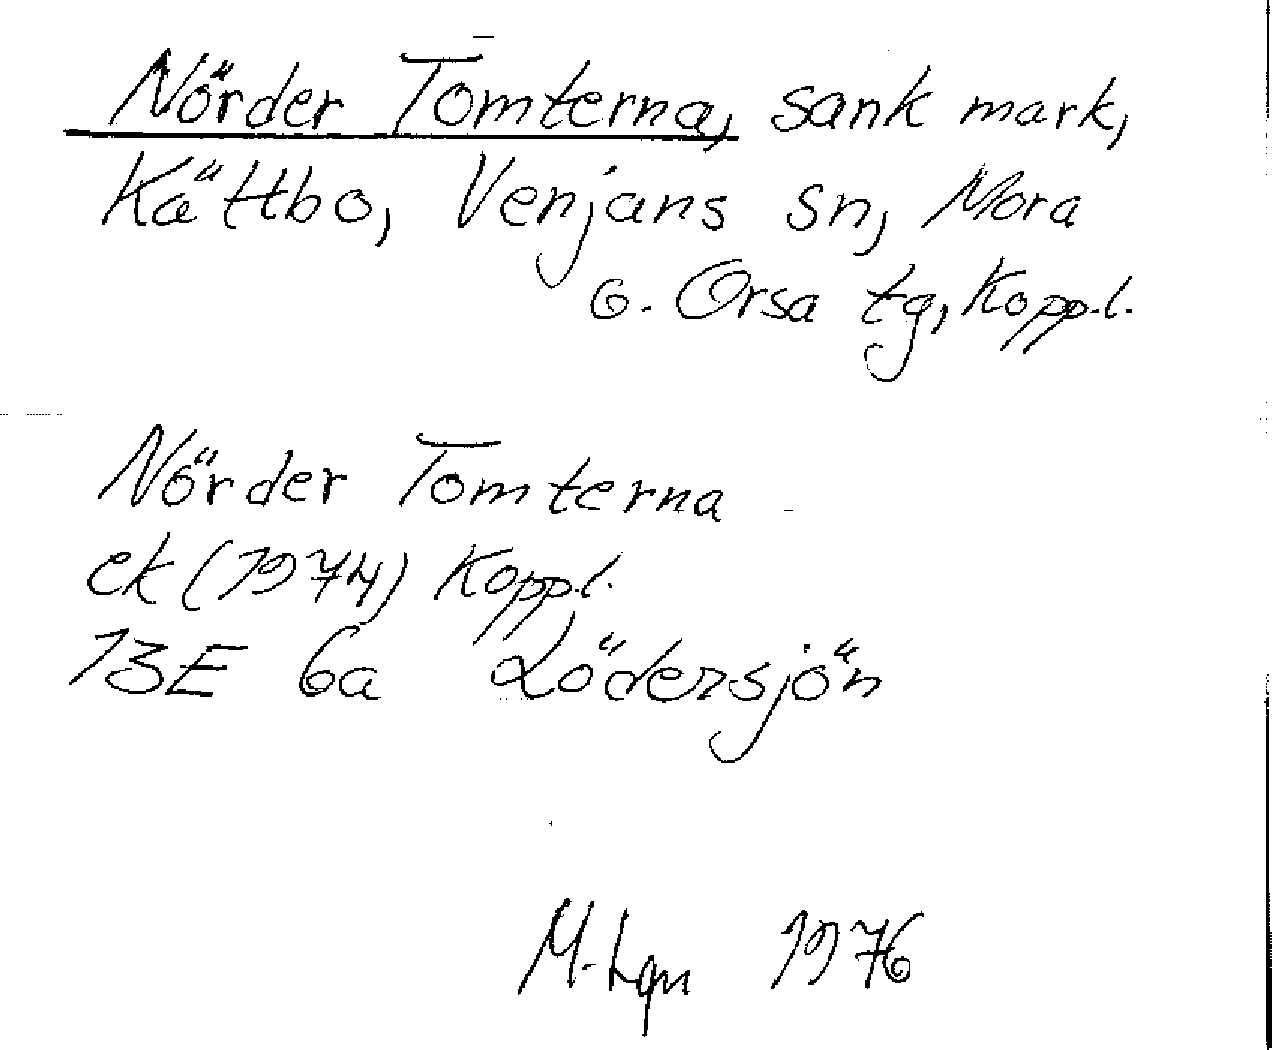 Nörder Tomterna, sank mark,
Kättbo, Venjans sn, Mora
o. Orsa tg, Kopp.l.
Nörder Tomterna
ek (1974) Kopp.l.
13E 6a Lödersjön
M. Lgn 1976